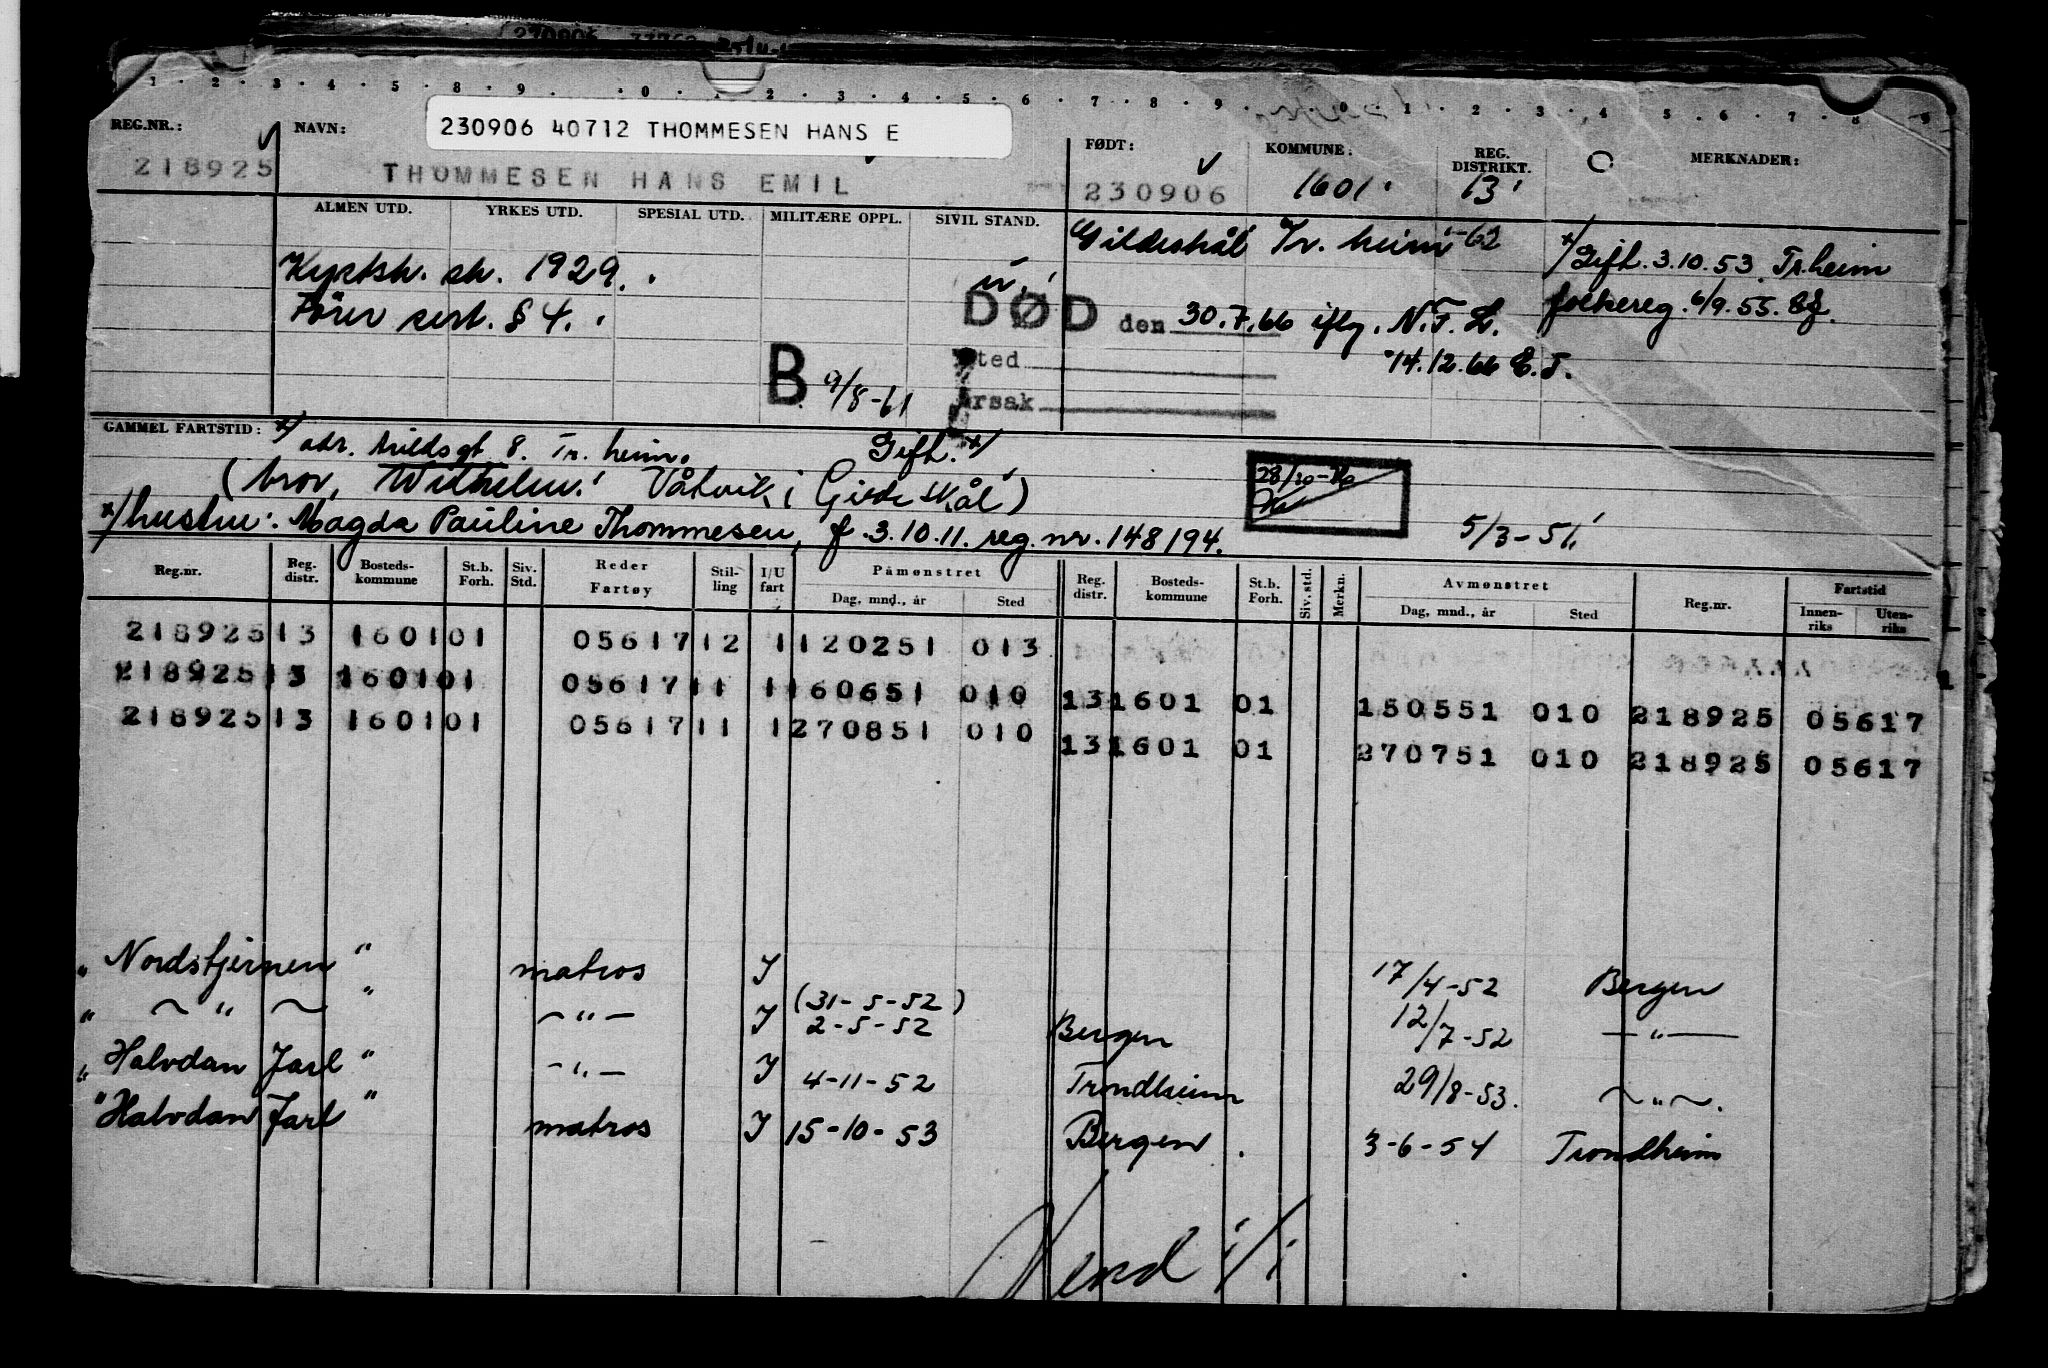 1 2 3 4 5 8 9 0 1 2 3 4 5 6 7 8 9 0 1 2 3 4 5 6 7 8 9
230906 40712 THOMMESEN HANS E
REG.NR.: NAVN: FØDT: KOMMUNE: REG. DISTRIKT. MERKNADER:
218925 THOMMESEN HANS EMIL 230906 1601 13
ALMEN UTD. YRKES UTD. SPESIAL UTD. MILITÆRE OPPL. SIVIL STAND.
Gildeskål Tr. heim -62
x/ Gift. 3.10.53 Tr.heim
folkereg. 6/9.55.
Kystsk. sk. 1929. u.
Förer sert. § 4.
DØD den 30.7.66 iflg. N.T.L.
14.12.66 E.T.
Sted
Årsak
B 9/8-61
GAMMEL FARTSTID: x/ adr. Arildsgt 8. Tr. heim. Gift. x/
(bror, Wilhelm. Våtvik i Gildeskål)
28/10-
x/ hustru: Magda Pauline Thommesen, f. 3.10.11. reg. nr. 148194.
5/3-51
Reg.nr. Reg. distr. Bosteds- kommune St.b. Forh. Siv. Std. Reder Fartøy Stil- ling I/U fart Påmønstret Dag, mnd., år Sted Reg. distr. Bosteds- kommune St.b. Forh. Siv. std. Merkn. Avmønstret Dag, mnd., år Sted Reg.nr. Fartstid Innen- riks Uten- riks
218925 13 1601 01 05617 12 1 120251 013
218925 13 1601 01 05617 11 1 160651 010 13 1601 01 150551 010 218925 05617
218925 13 1601 01 05617 11 1 270851 010 13 1601 01 270751 010 218925 05617
" Nordstjernen " matros I 17/4-52 Bergen
" ~ " ~ " - " - I (31-5-52) 2-5-52 Bergen 12/7-52 - " -
" Halvdan Jarl " - " - I 4-11-52 Trondheim 29/8-53. ~ " ~.
" Halvdan Jarl " matros I 15-10-53 Bergen. 3-6-54 Trondheim
Vend !/!